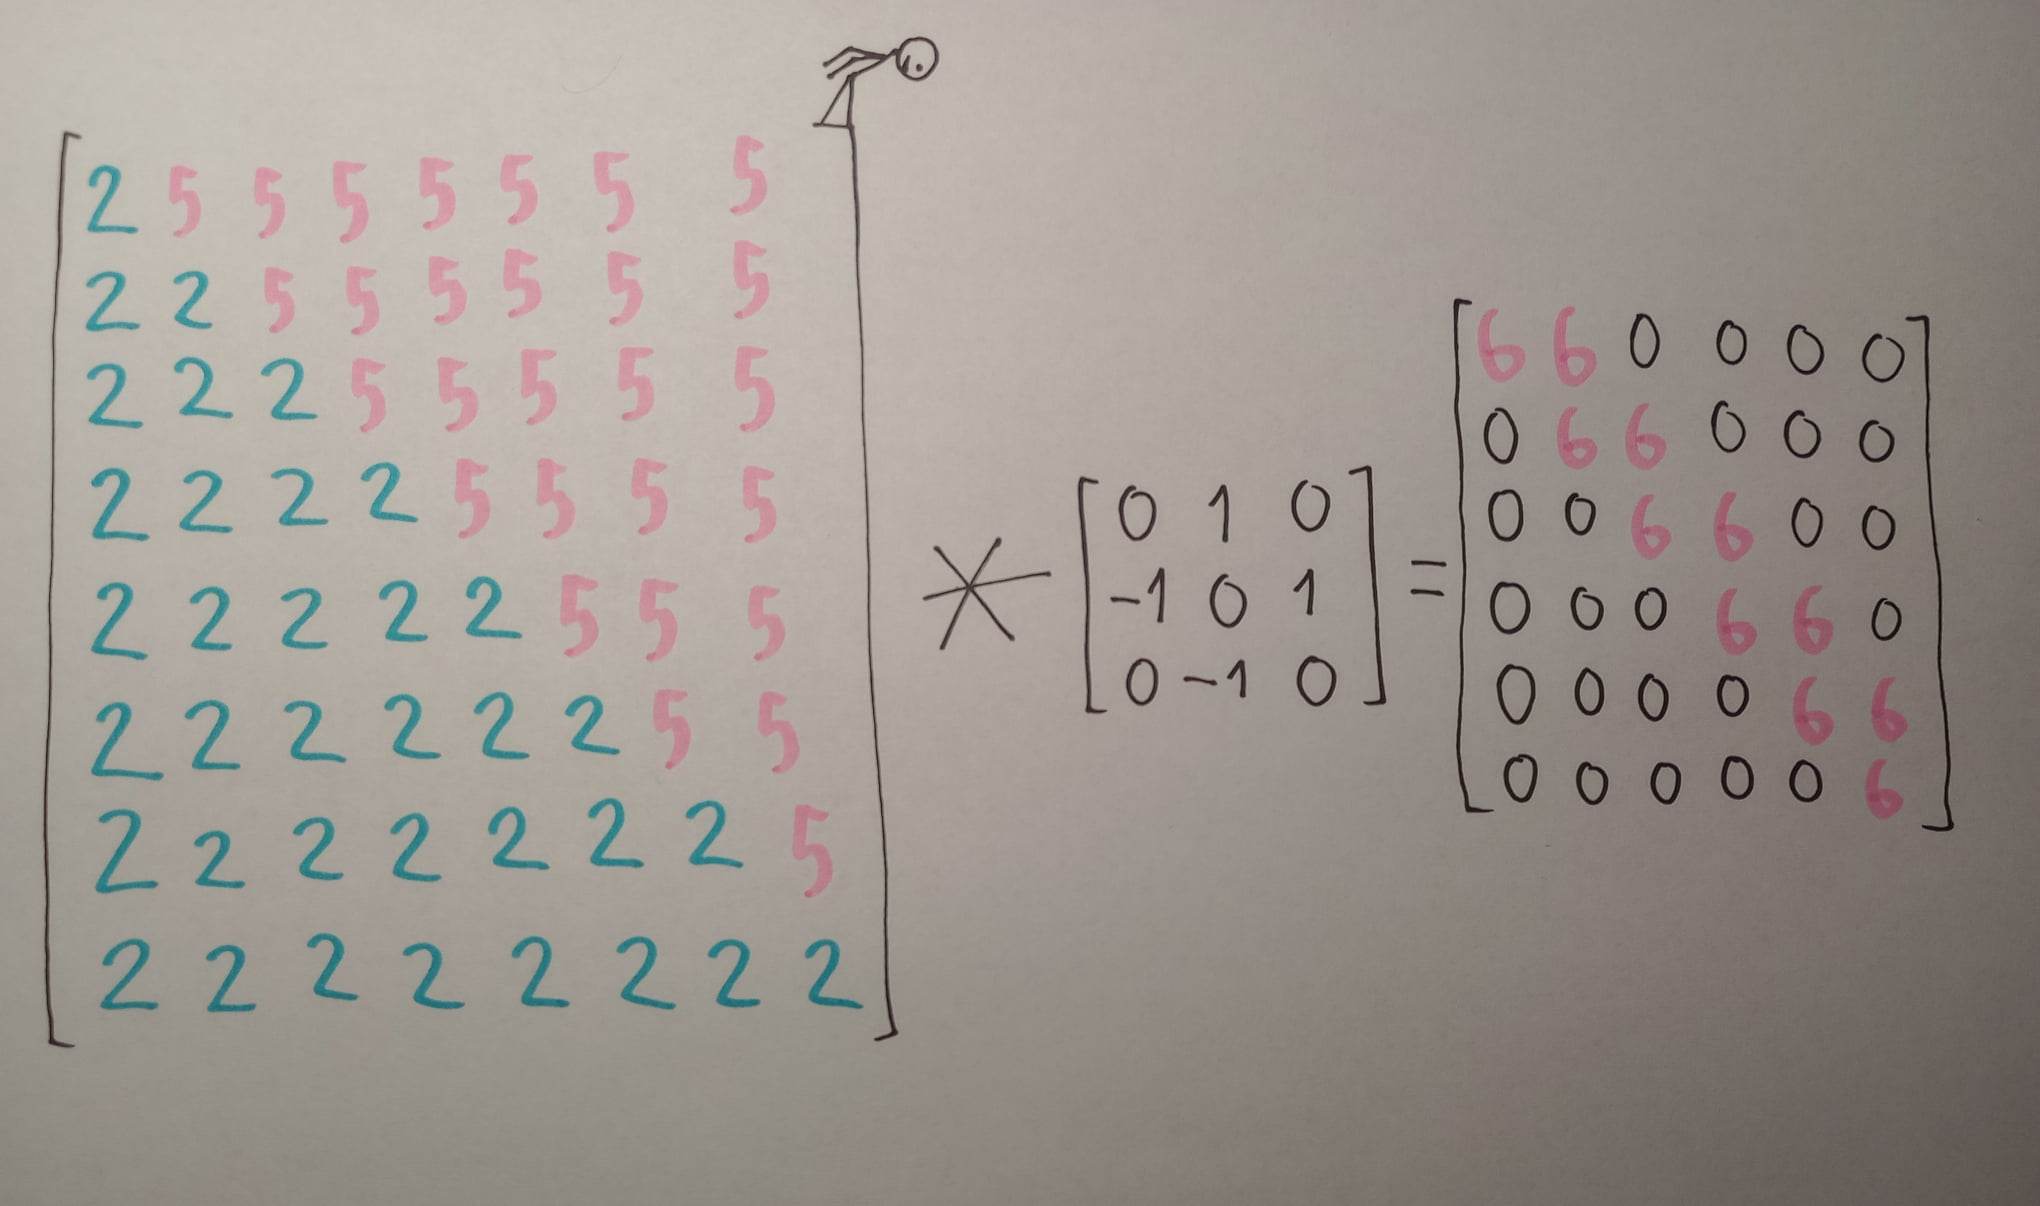 2 5 5 5 5 5 5 5
2 2 5 5 5 5 5 5
2 2 2 5 5 5 5 5
2 2 2 2 5 5 5 5
2 2 2 2 2 5 5 5
2 2 2 2 2 2 5 5
2 2 2 2 2 2 2 5
2 2 2 2 2 2 2 2
*
0 1 0
-1 0 1
0 -1 0
=
6 6 0 0 0 0
0 6 6 0 0 0
0 0 6 6 0 0
0 0 0 6 6 0
0 0 0 0 6 6
0 0 0 0 0 6